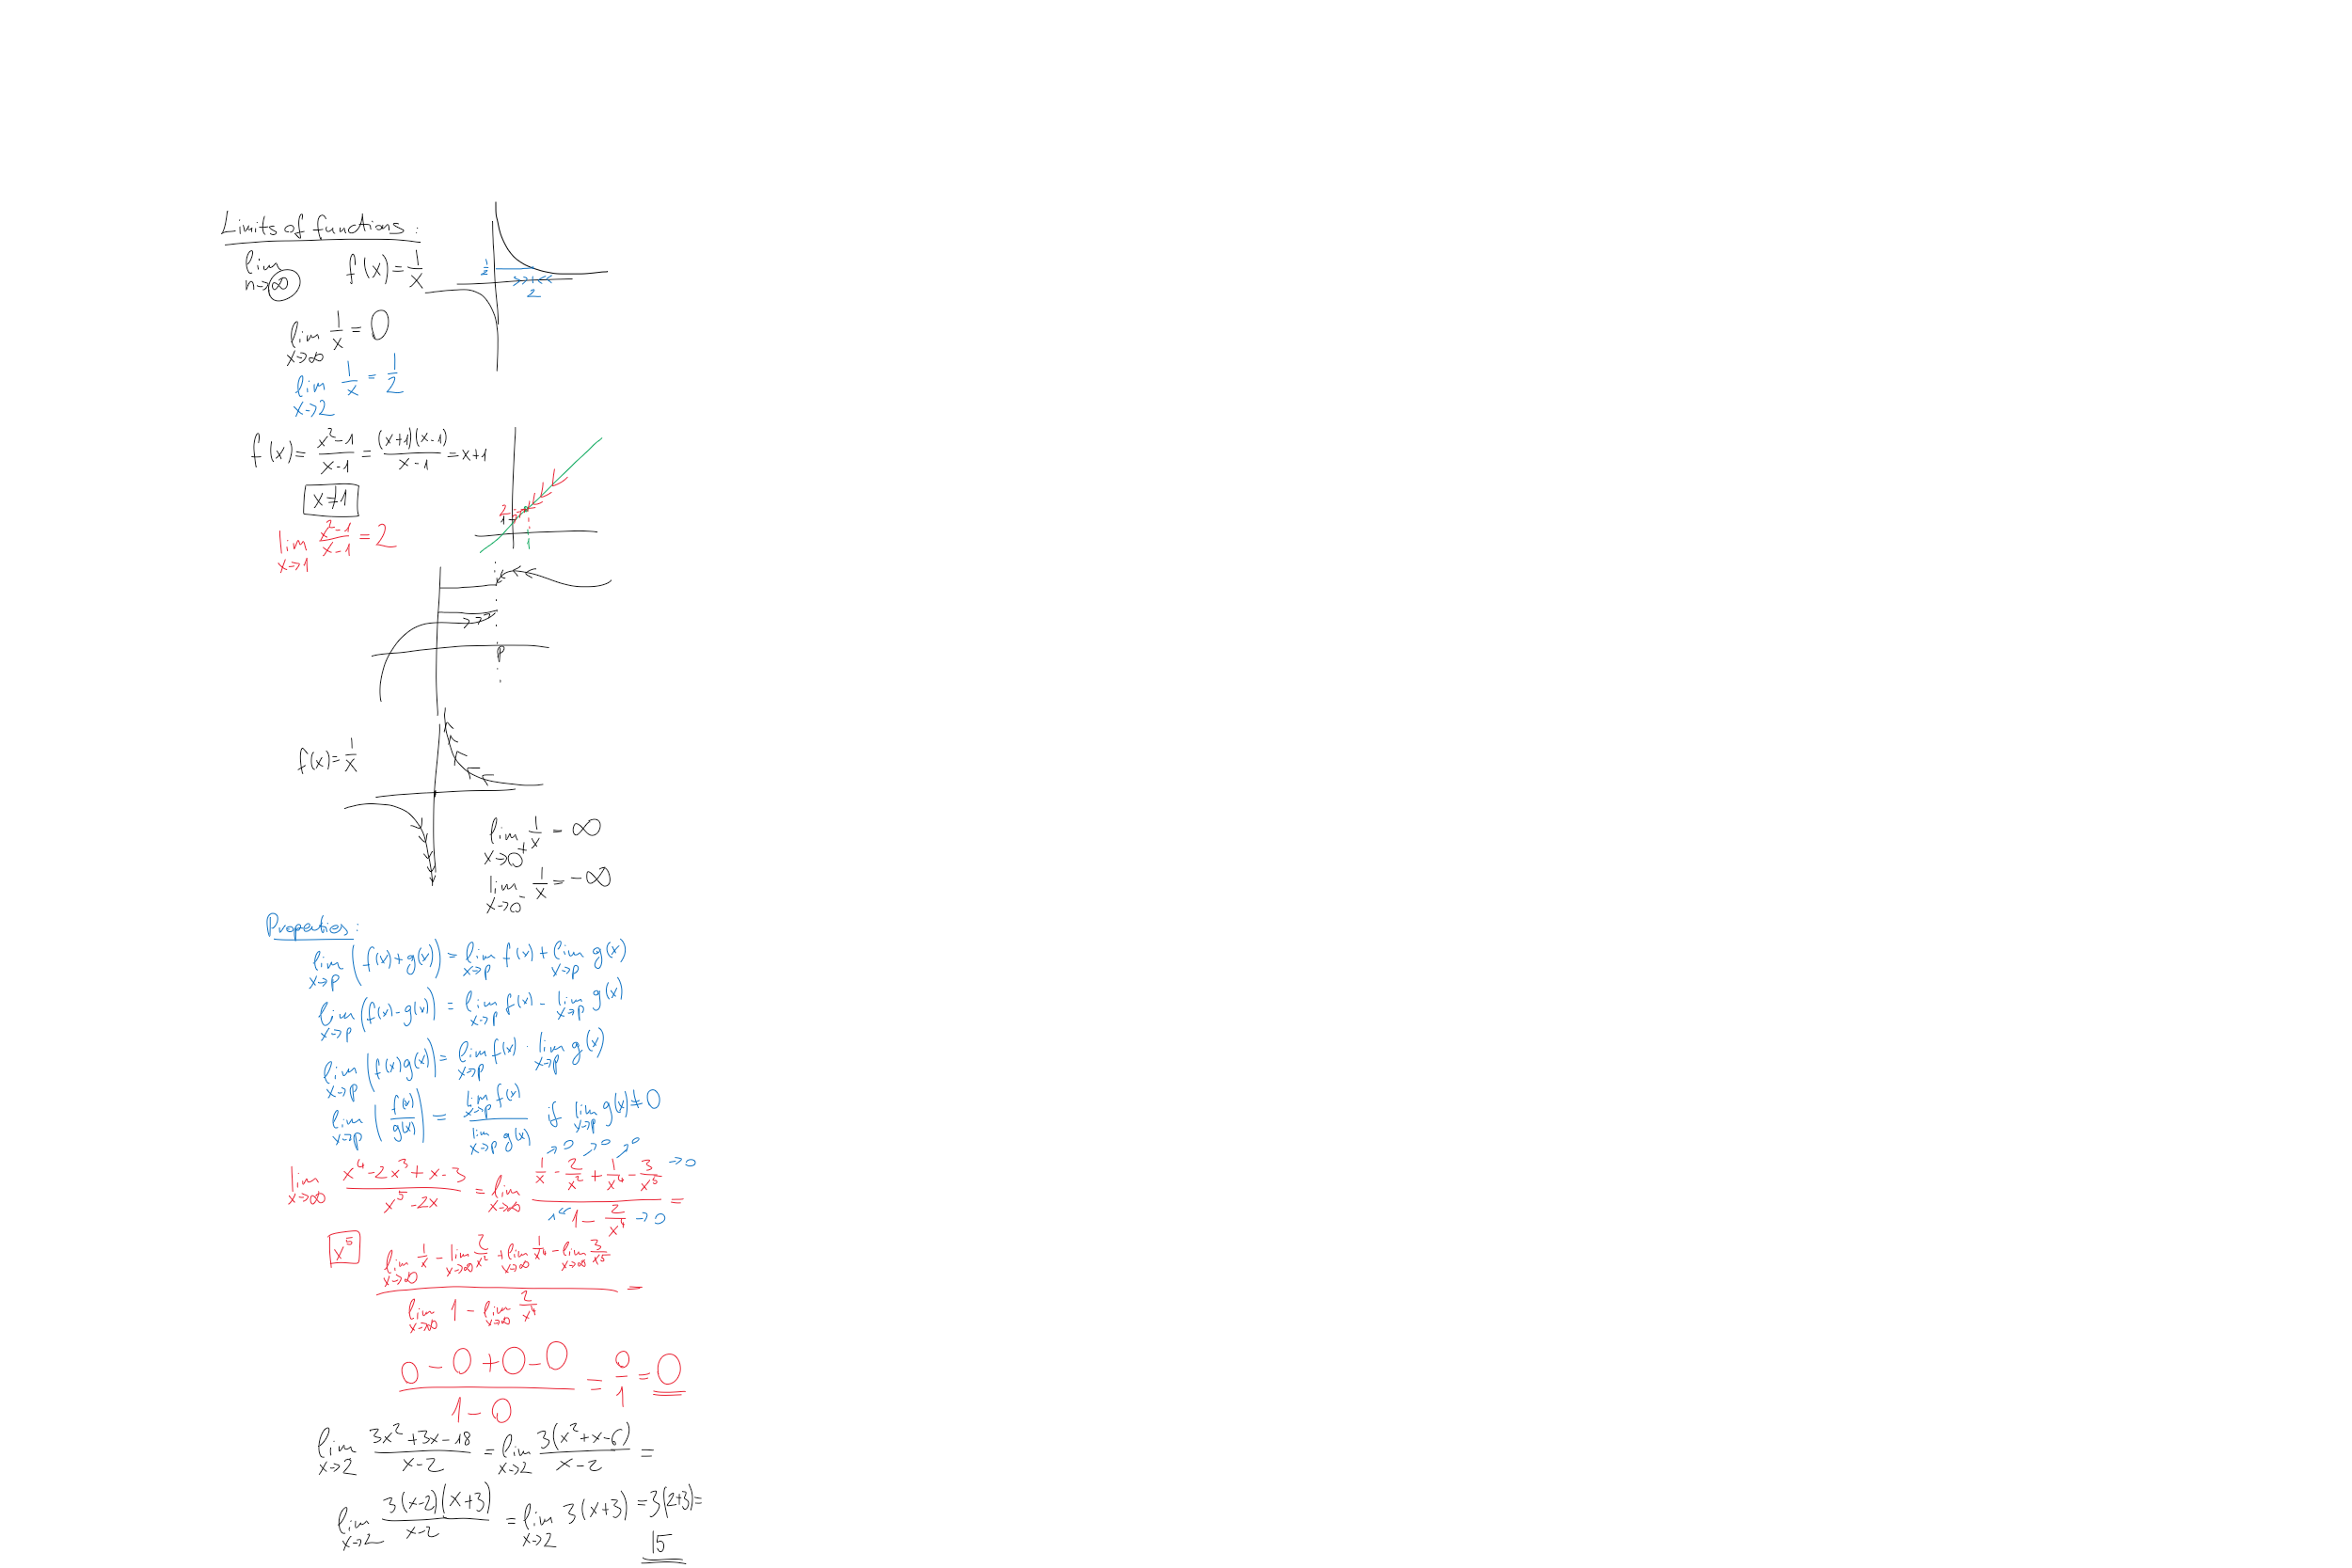 Limits of functions:
lim n→∞ f(x) = 1/x
1/2
2
lim x→∞ 1/x = 0
lim x→2 1/x = 1/2
f(x) = (x²-1)/(x-1) = (x+1)(x-1)/(x-1) = x+1
x≠1
2
1
1
lim x→1 (x²-1)/(x-1) = 2
p
f(x) = 1/x
lim x→0⁺ 1/x = ∞
lim x→0⁻ 1/x = -∞
Properties:
lim x→p (f(x)+g(x)) = lim x→p f(x) + lim x→p g(x)
lim x→p (f(x)-g(x)) = lim x→p f(x) - lim x→p g(x)
lim x→p (f(x)g(x)) = lim x→p f(x) · lim x→p g(x)
lim x→p (f(x)/g(x)) = lim x→p f(x) / lim x→p g(x) if lim x→p g(x) ≠ 0
→0 →0 →0
lim x→∞ (x⁴-2x³+x-3)/(x⁵-2x) = lim x→∞ (1/x - 2/x² + 1/x⁴ - 3/x⁵)/(1 - 2/x⁴) =
→0
1← →0
x⁵
(lim x→∞ 1/x - lim x→∞ 2/x² + lim x→∞ 1/x⁴ - lim x→∞ 3/x⁵)/(lim x→∞ 1 - lim x→∞ 2/x⁴) =
(0-0+0-0)/(1-0) = 0/1 = 0
lim x→2 (3x²+3x-18)/(x-2) = lim x→2 3(x²+x-6)/(x-2) =
lim x→2 3(x-2)(x+3)/(x-2) = lim x→2 3(x+3) = 3(2+3) =
15